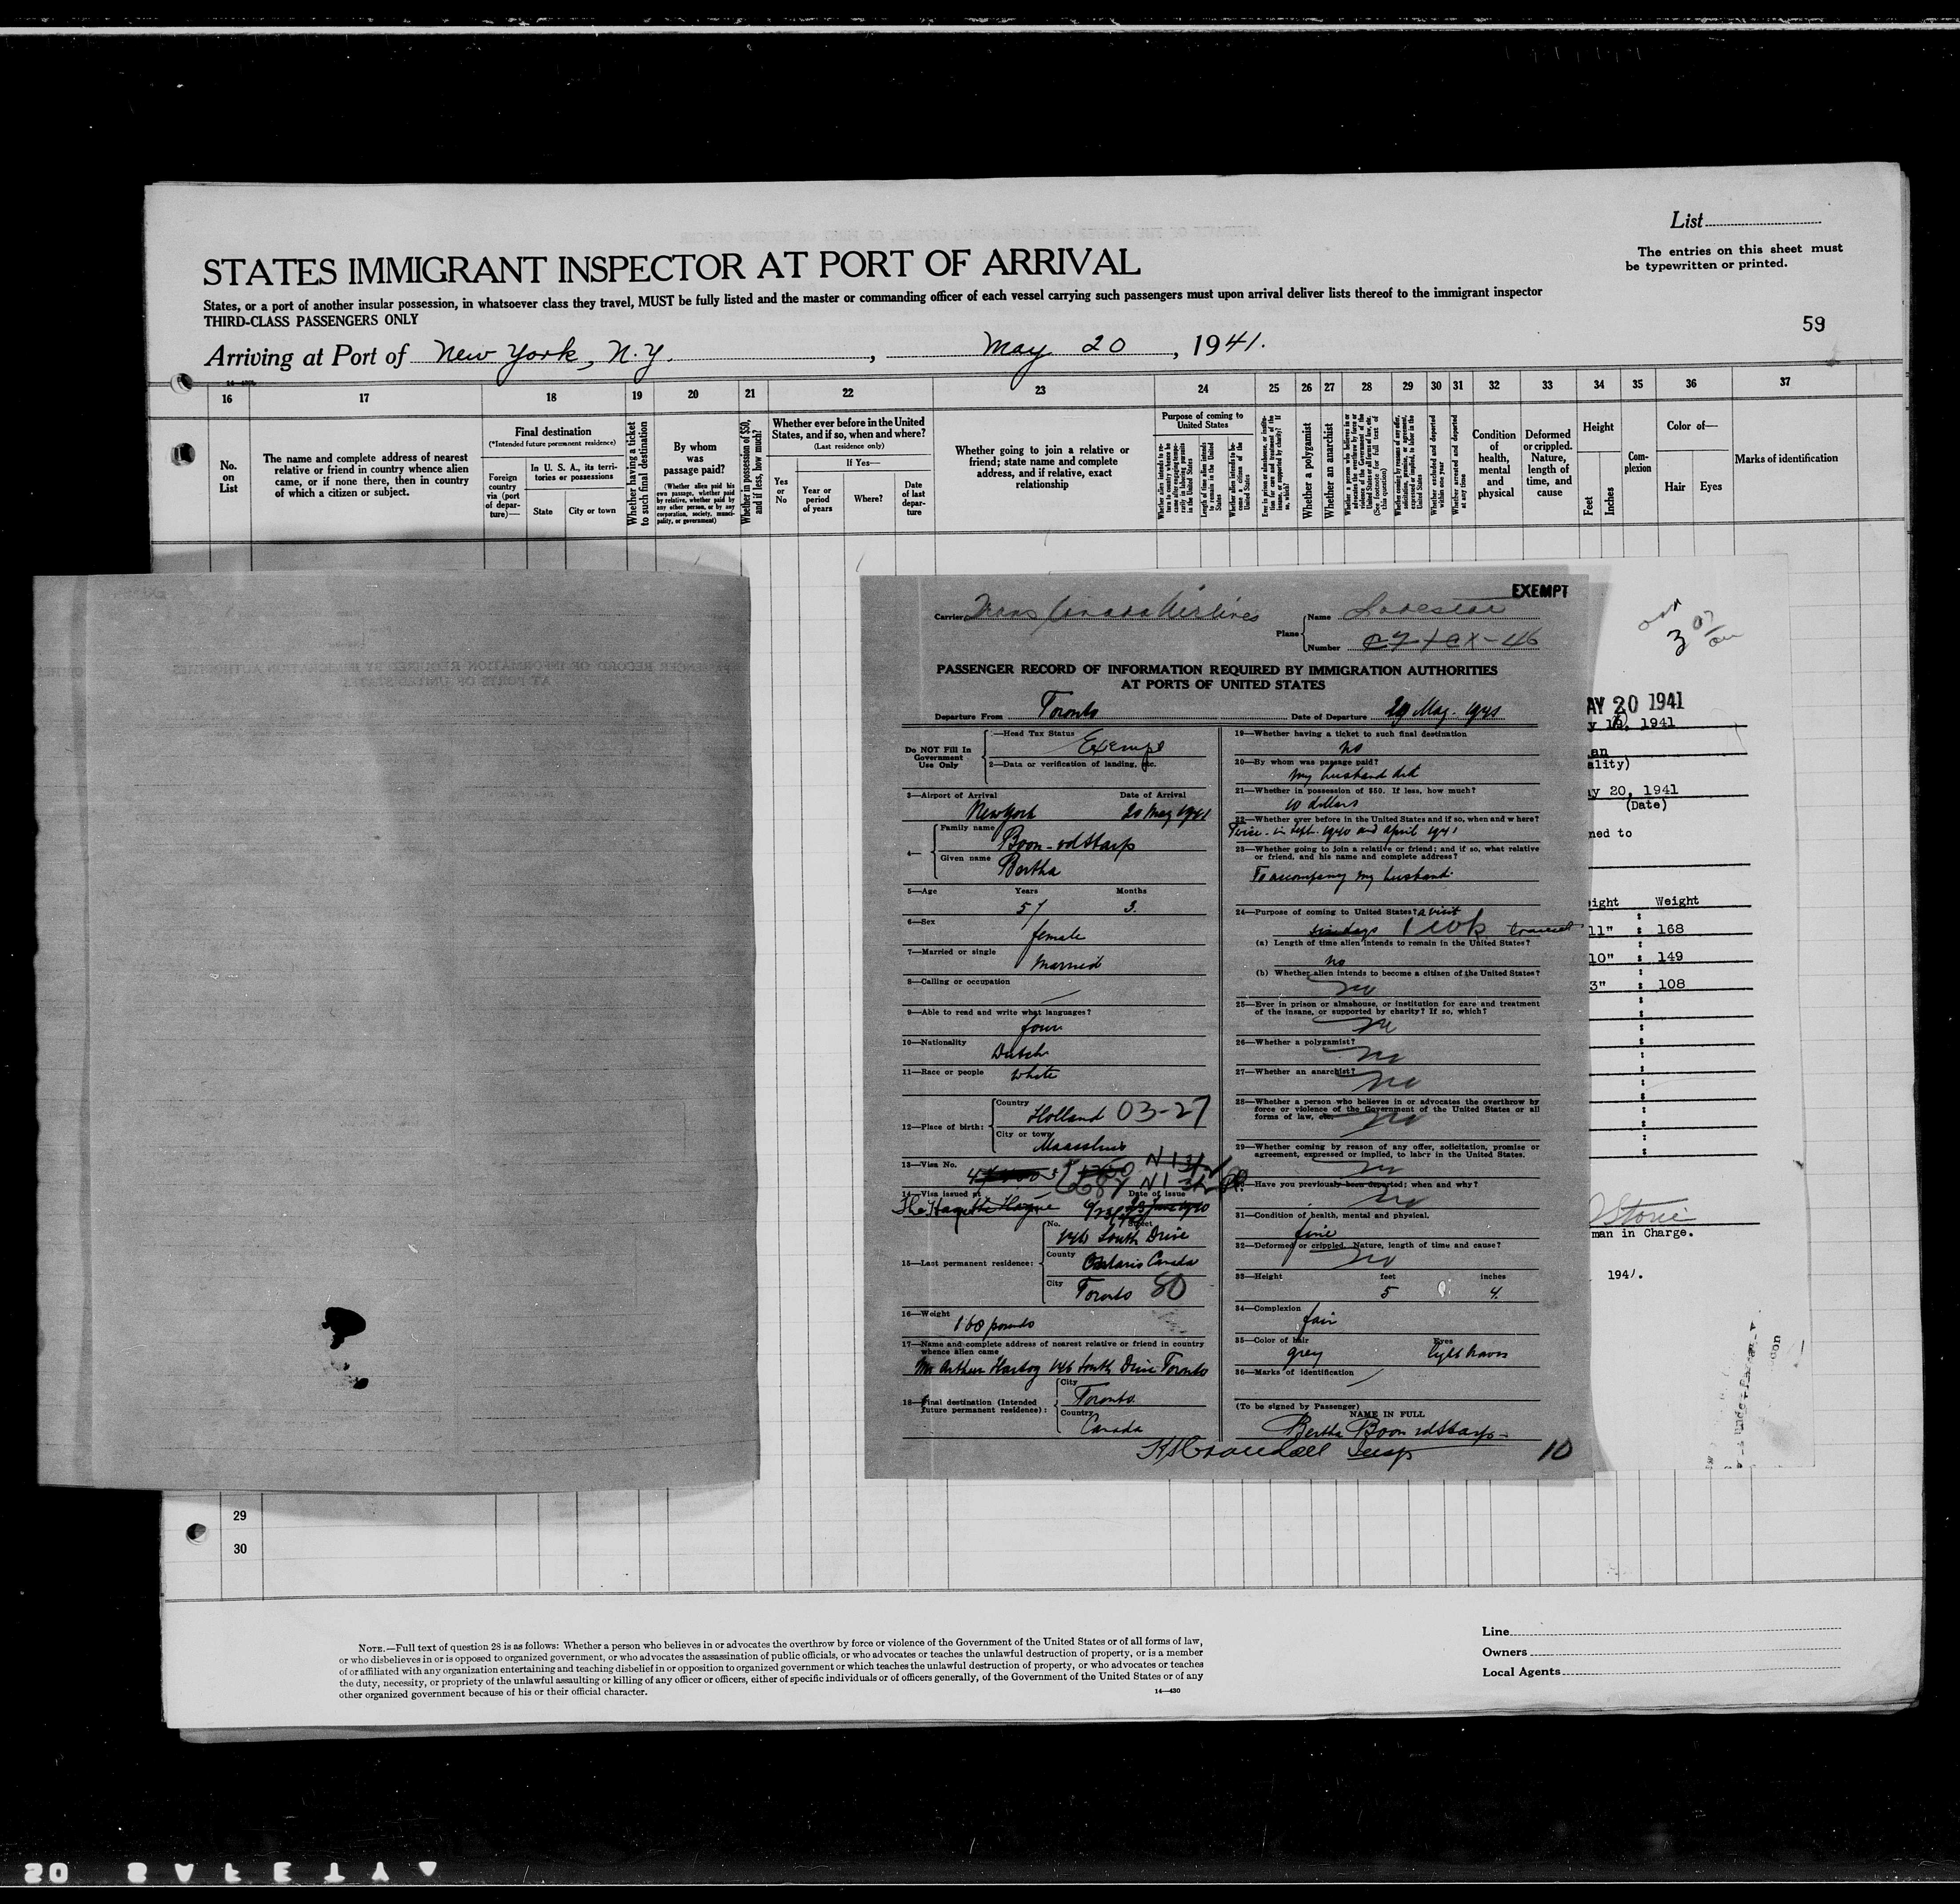 List
The entries on this sheet must
be typewritten or printed.
STATES IMMIGRANT INSPECTOR AT PORT OF ARRIVAL
States, or a port of another insular possession, in whatsoever class they travel, MUST be fully listed and the master or commanding officer of each vessel carrying such passengers must upon arrival deliver lists thereof to the immigrant inspector
THIRD-CLASS PASSENGERS ONLY
59
Arriving at Port of New York, N.Y. , May 20 , 1941.
16 17 18 19 20 21 22 23 24 25 26 27 28 29 30 31 32 33 34 35 36 37
No. on List
The name and complete address of nearest
relative or friend in country whence alien
came, or if none there, then in country
of which a citizen or subject.
Final destination
(*Intended future permanent residence)
Foreign country via (port of departure)—
In U. S. A., its territories or possessions
State
City or town
Whether having a ticket to such final destination
By whom was passage paid?
(Whether alien paid his own passage, whether paid by relative, whether paid by any other person, or by any corporation, society, municipality, or government)
Whether in possession of $50, and if less, how much?
Whether ever before in the United
States, and if so, when and where?
(Last residence only)
Yes or No
If Yes—
Year or period of years
Where?
Date of last departure
Whether going to join a relative or
friend; state name and complete
address, and if relative, exact
relationship
Purpose of coming to United States
Whether a polygamist
Whether an anarchist
Condition of health, mental and physical
Deformed or crippled. Nature, length of time, and cause
Height
Feet
Inches
Complexion
Color of—
Hair
Eyes
Marks of identification
EXEMPT
Carrier Trans Canada Airlines
Plane
Name Lodestar
Number
PASSENGER RECORD OF INFORMATION REQUIRED BY IMMIGRATION AUTHORITIES
AT PORTS OF UNITED STATES
Departure From Toronto
Date of Departure 20 May. 1941
Do NOT Fill In
Government
Use Only
—Head Tax Status
Exempt
2—Data or verification of landing, etc.
3—Airport of Arrival Date of Arrival
New York 20 May 1941
4—
Family name
Boon-vdStarp
Given name
Bertha
5—Age Years Months
57 3.
6—Sex
female
7—Married or single
Married
8—Calling or occupation
9—Able to read and write what languages?
four
10—Nationality
Dutch
11—Race or people
white
12—Place of birth:
Country
Holland 03-27
City or town
Maassluis
13—Visa No.
14—Visa issued at Date of issue
The Hague
15—Last permanent residence:
No. Street
146 South Drive
County
Ontario Canada
City
Toronto 80
16—Weight
160 pounds
17—Name and complete address of nearest relative or friend in country
whence alien came
Mr Arthur Hartog 146 South Drive Toronto
18—Final destination (Intended
future permanent residence):
City
Toronto
Country
Canada
19—Whether having a ticket to such final destination
no
20—By whom was passage paid?
my husband did
21—Whether in possession of $50. If less, how much?
10 dollars
22—Whether ever before in the United States and if so, when and where?
Twice - in Sept. 1940 and April 1941
23—Whether going to join a relative or friend; and if so, what relative
or friend, and his name and complete address?
To accompany my husband.
24—Purpose of coming to United States? a visit
1 wk
(a) Length of time alien intends to remain in the United States?
no
(b) Whether alien intends to become a citizen of the United States?
no
25—Ever in prison or almshouse, or institution for care and treatment
of the insane, or supported by charity? If so, which?
no
26—Whether a polygamist?
no
27—Whether an anarchist?
no
28—Whether a person who believes in or advocates the overthrow by
force or violence of the Government of the United States or all
forms of law, etc.
no
29—Whether coming by reason of any offer, solicitation, promise or
agreement, expressed or implied, to labor in the United States.
no
Have you previously been deported; when and why?
no
31—Condition of health, mental and physical.
fine
32—Deformed or crippled. Nature, length of time and cause?
no
33—Height feet inches
5 4.
34—Complexion
fair
35—Color of hair Eyes
grey
36—Marks of identification
(To be signed by Passenger)
NAME IN FULL
Bertha Boon vdStarp
Insp
10
AY 20 1941
y 19, 1941
an
ality)
ay 20, 1941
(Date)
ned to
ight Weight
11" : 168
10" : 149
3" : 108
man in Charge.
1941.
29
30
NOTE.—Full text of question 28 is as follows: Whether a person who believes in or advocates the overthrow by force or violence of the Government of the United States or of all forms of law,
or who disbelieves in or is opposed to organized government, or who advocates the assassination of public officials, or who advocates or teaches the unlawful destruction of property, or is a member
of or affiliated with any organization entertaining and teaching disbelief in or opposition to organized government or which teaches the unlawful destruction of property, or who advocates or teaches
the duty, necessity, or propriety of the unlawful assaulting or killing of any officer or officers, either of specific individuals or of officers generally, of the Government of the United States or of any
other organized government because of his or their official character.
14—430
Line
Owners
Local Agents
SAFETY